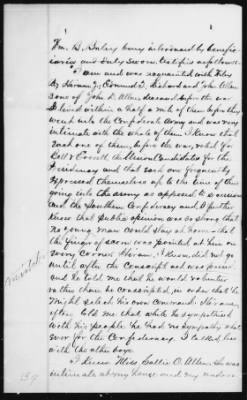 Wm. B. Bulez being introduced by benefi-
ciaries and duly sworn, testifies as follows:
I am and was acquainted with Wiley
B, Hiram J, Edmund D, Richard and John Allen
sons of John D. Allen deceased before the war
I lived within a half a mile of them before they
went into the Confederate Army and was very
intimate with the whole of them. I know that
each one of them, before the war, voted for
Bell & Everett, the Union Candidates for the
Presidency and that each one frequently
expressed themselves up to the time of their
going into the army as opposed to secession
and the Southern Confederacy, and I further
know that public opinion was so strong that
no young man could stay at home that
the finger of scorn was pointed at him on
every corner. Hiram, I know, did not go
until after the conscript act was passed
and he told me that he would volunteer
rather than be conscripted, in order that he
might select his own command. Hiram
often told me that while he sympathised
with his people he had no sympathy what
ever for the Confederacy. I talked
with the other boys
I knew Miss Sallie O. Allen. She was
intimate at my house and my